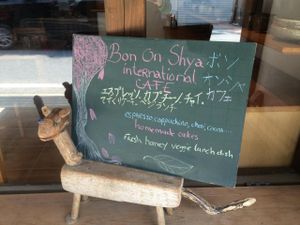 Bon On Shya ボン
international オンシャ
CAFÉ カフェ
エスプレッソ、カプチーノ、チャイ、
espresso, cappuchino, chai, cocoa....
homemade cakes
Fresh honey veggie lunch dish